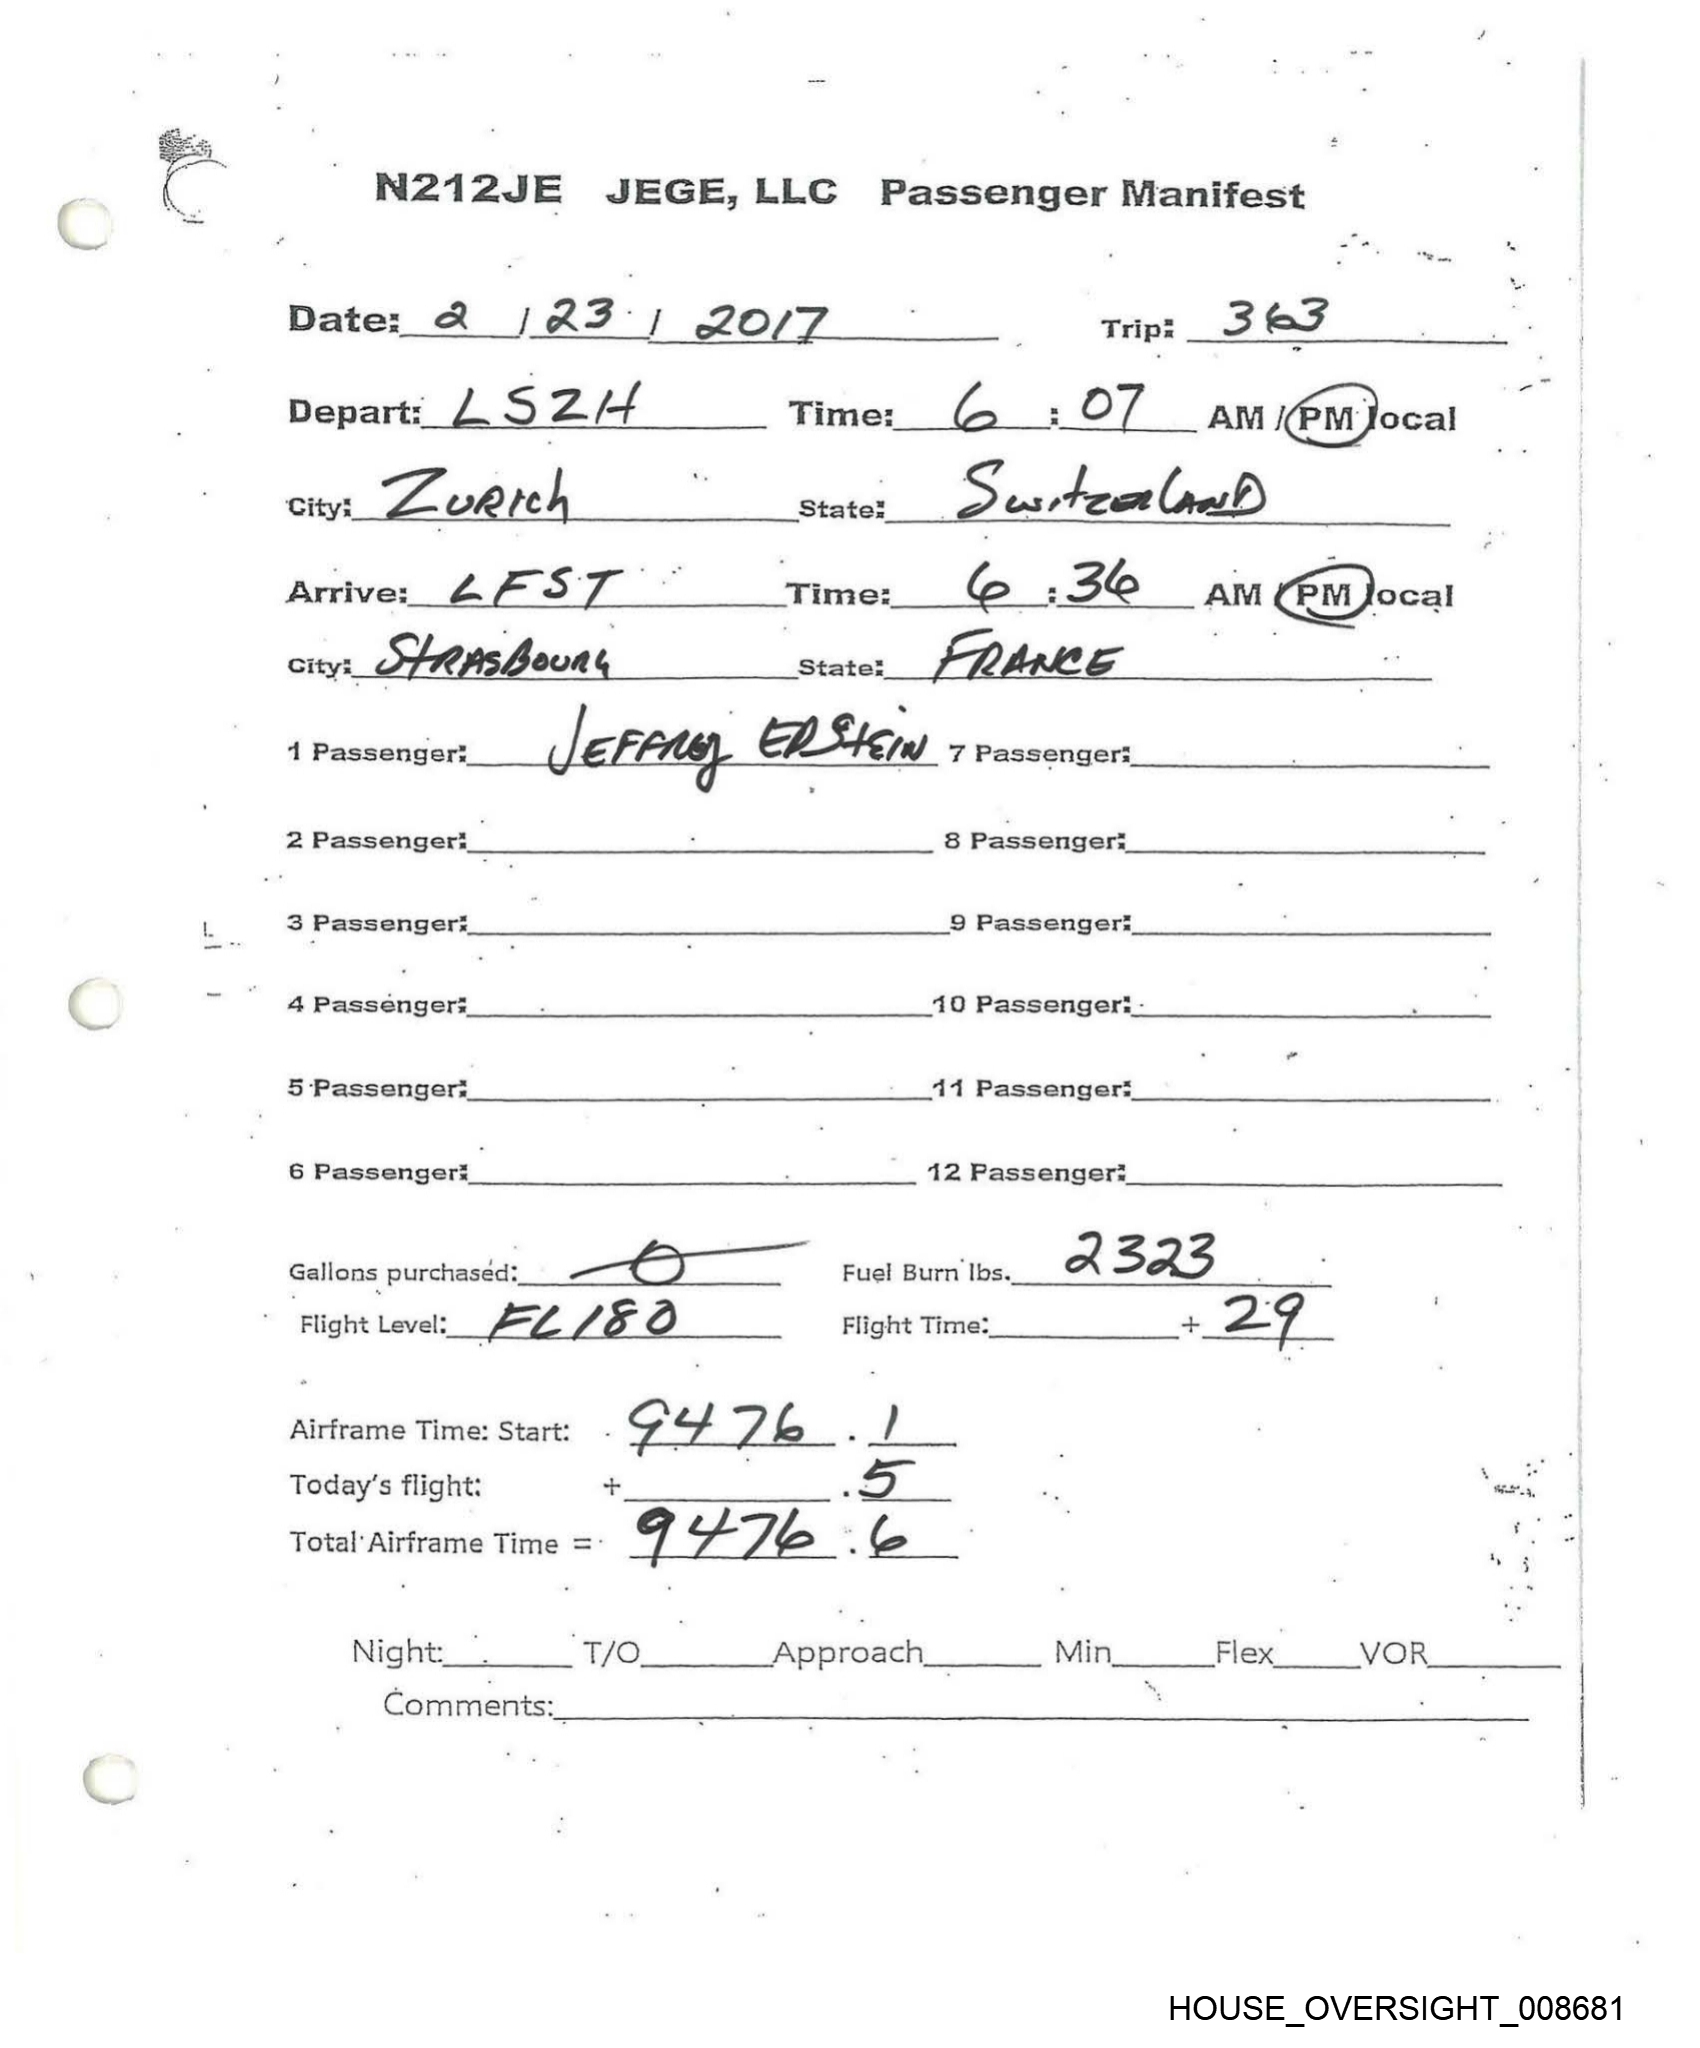 N212JE JEGE, LLC Passenger Manifest
Date: 2 / 23 / 2017 Trip: 363
Depart: LSZH Time: 6 : 07 AM / PM local
City: Zurich State: Switzerland
Arrive: LFST Time: 6 : 36 AM / PM local
City: Strasbourg State: France
1 Passenger: Jeffrey Epstein 7 Passenger:
2 Passenger: 8 Passenger:
3 Passenger: 9 Passenger:
4 Passenger: 10 Passenger:
5 Passenger: 11 Passenger:
6 Passenger: 12 Passenger:
Gallons purchased: 0 Fuel Burn lbs. 2323
Flight Level: FL180 Flight Time: + 29
Airframe Time: Start: 9476 . 1
Today's flight: + . 5
Total Airframe Time = 9476 . 6
Night: T/O Approach Min Flex VOR
Comments:
HOUSE_OVERSIGHT_008681